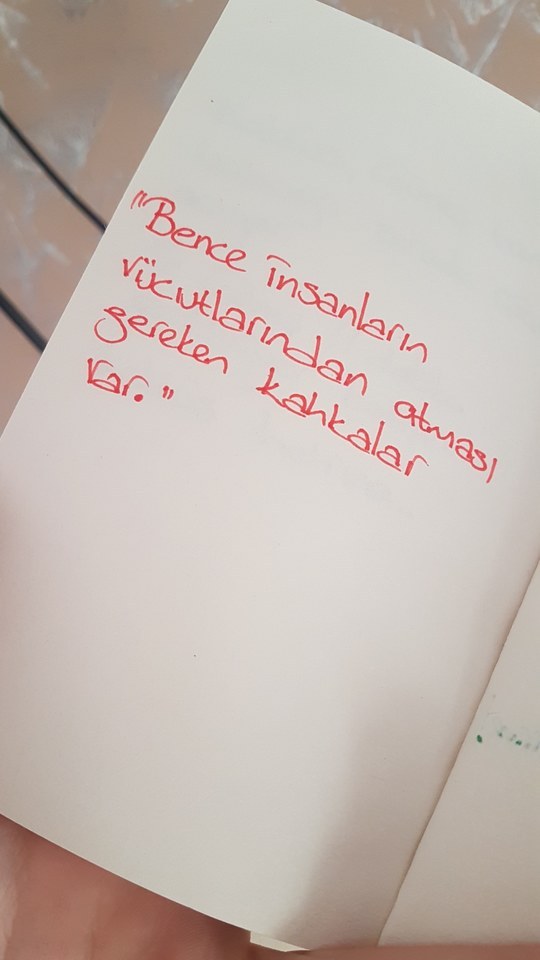 "Bence insanların
vücutlarından atması
gereken kahkalar
var."